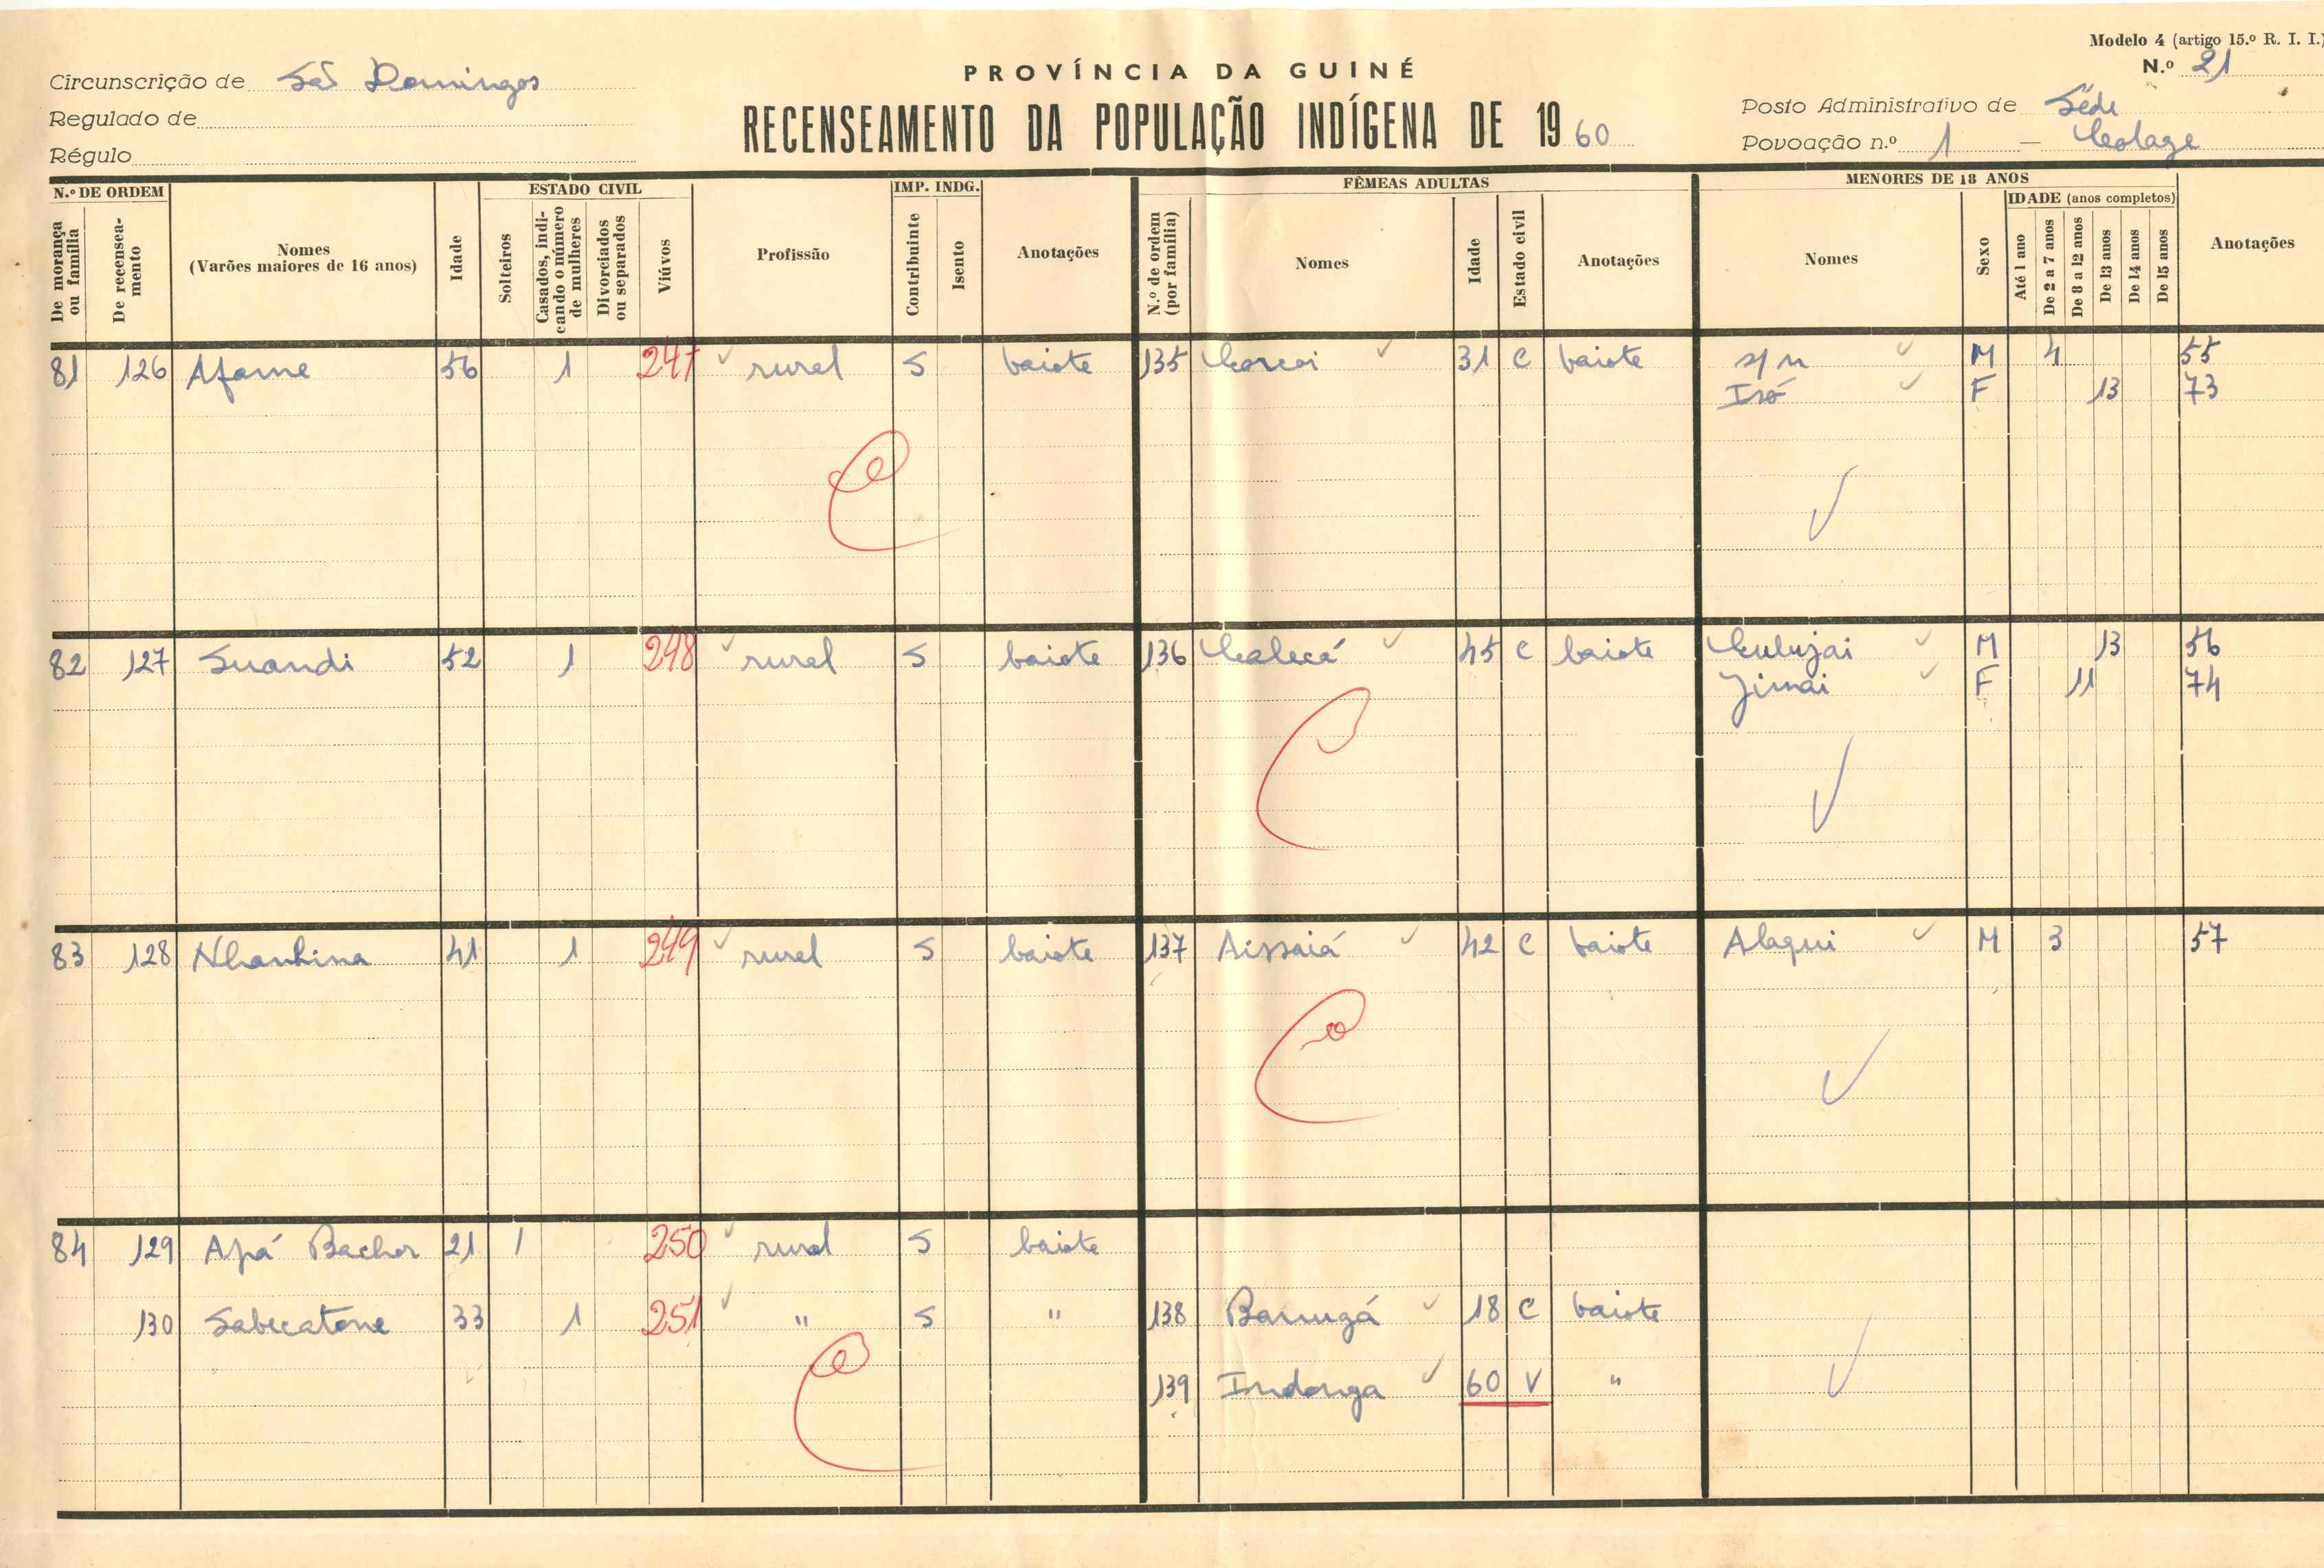 Modelo 4 (artigo 15.º R. I. I.)
N.º 21
PROVÍNCIA DA GUINÉ
RECENSEAMENTO DA POPULAÇÃO INDÍGENA DE 1960
Circunscrição de São Domingos
Regulado de
Régulo
Posto Administrativo de Séde
Povoação n.º 1 — Colage
N.º DE ORDEM
De morança ou família
De recenseamento
Nomes
(Varões maiores de 16 anos)
Idade
ESTADO CIVIL
Solteiros
Casados, indicando o número de mulheres
Divorciados ou separados
Viúvos
Profissão
IMP. INDG.
Contribuinte
Isento
Anotações
FÊMEAS ADULTAS
N.º de ordem (por família)
Nomes
Idade
Estado civil
Anotações
MENORES DE 18 ANOS
Nomes
Sexo
IDADE (anos completos)
Até 1 ano
De 2 a 7 anos
De 8 a 12 anos
De 13 anos
De 14 anos
De 15 anos
Anotações
81 126 Afame 56 1 247 rural S baiote 135 Corcoi 31 C baiote s/n M 4 55
Isó F 13 73
82 127 Suandi 52 1 248 rural S baiote 136 Calecá 45 C baiote Culujai M 13 56
Jimai F 11 74
83 128 Nhanhina 41 1 249 rural S baiote 137 Aissaiá 42 C baiote Alaqui M 3 57
84 129 Apá Bachor 21 1 250 rural S baiote
130 Sabecatone 33 1 251 " S " 138 Barugá 18 C baiote
139 Indonga 60 V "